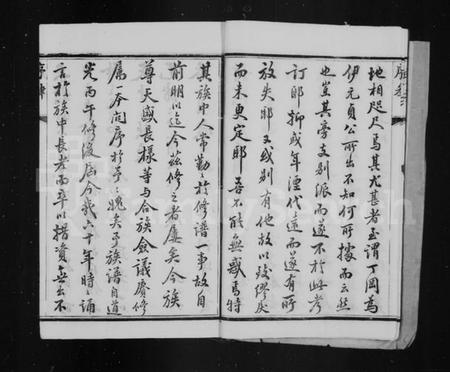 地相咫尺焉其尤甚者至謂丁岡為
伊元貞公所出不知何所據而云然
也豈其旁支別派而遂不於此考
訂耶抑或年湮代遠而遂有所
放失耶又或別有他故以致繆戾
而未更定耶吾不能無惑焉特
其族中人常勤於修譜一事故自
前明以迄今茲修之者屢矣今族
尊天盛長樣等與合族僉議賡修
屬一本問序於予予愧矣予族譜自道
光丙午修後屆今我六十年時時誦
言於族中長老而卒以措資無出不